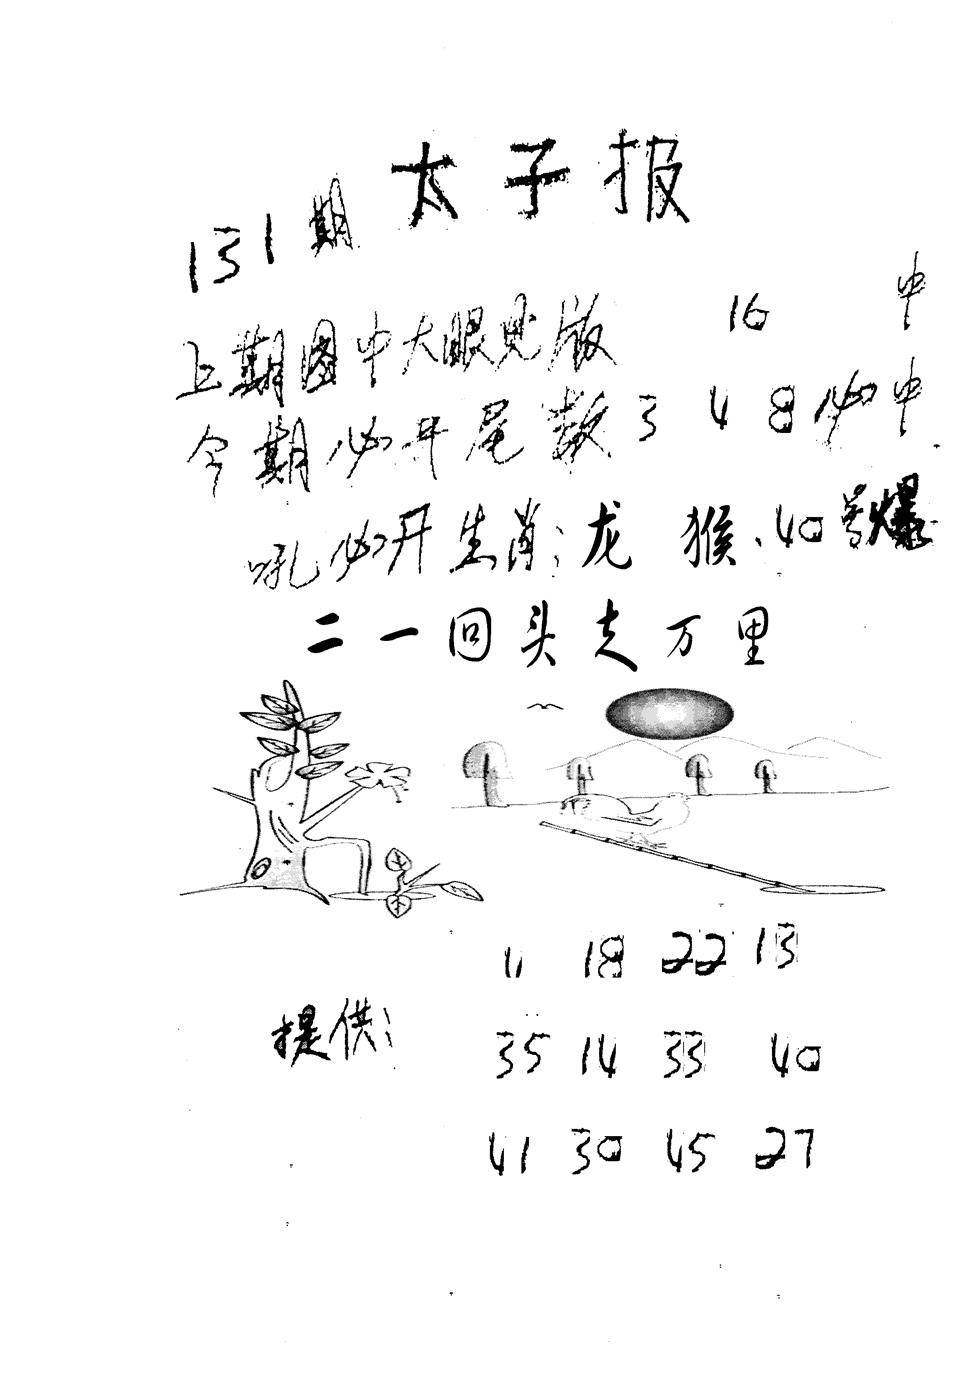 太子报
131期
上期图中大眼见版 16 中
今期必开尾数3 4 8必中
吼必开生肖:龙 猴、40号爆
二一回头走万里
11 18 22 13
提供:
35 14 33 40
41 30 45 27